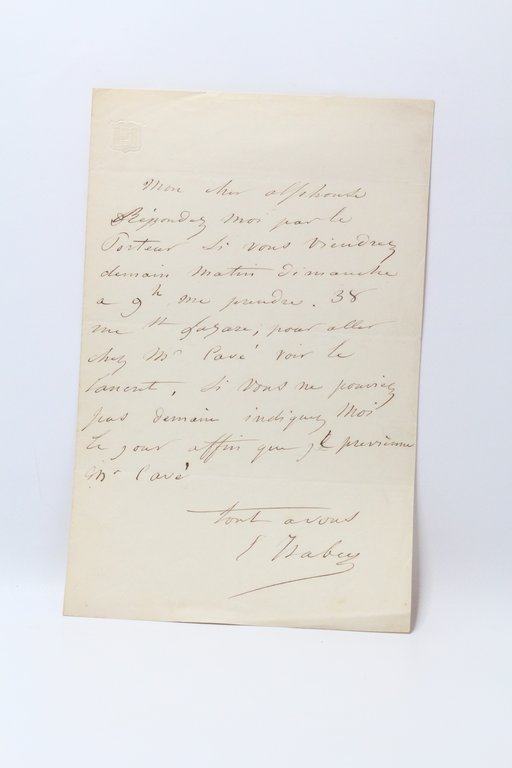 Mon cher alphonse
Répondez moi par le
Porteur si vous viendrez
demain matin dimanche
a 9h me prendre. 38
rue St Lazare, pour aller
chez Mr Cavé voir le
Lancret, si vous ne pouviez
pas demain indiquez moi
le jour affin que je previenne
Mr Cavé
tout a vous
E Isabey